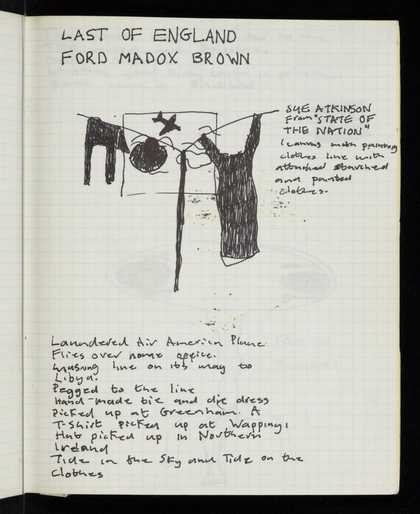 LAST OF ENGLAND
FORD MADOX BROWN
SUE ATKINSON
From "STATE OF
THE NATION"
(canvas main painting
clothes line with
attached starched
and painted
clothes.
Laundered Air America Plane
Flies over home office.
washing line on its way to
Libya.
Pegged to the line
Hand-made tie and die dress
picked up at Greenham. A
T-Shirt picked up at Wapping,
Hat picked up in Northern
Ireland
Tide in the Sky and Tide on the
Clothes